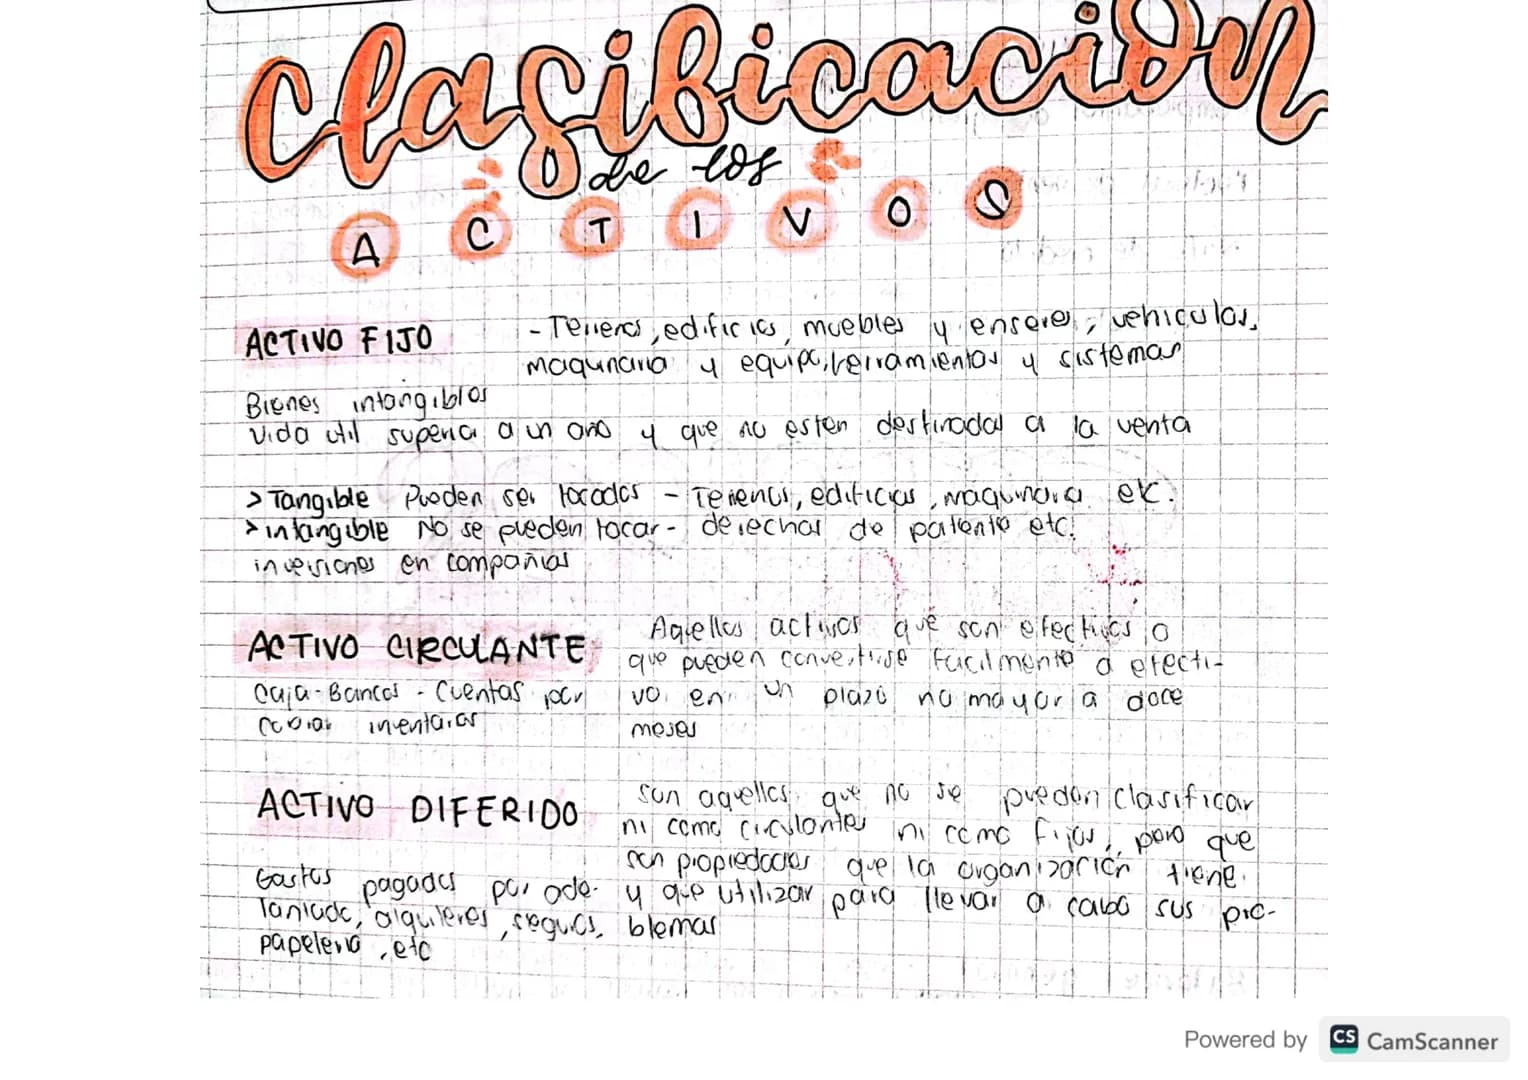 Clasificación
de los
ACTIVOS
ACTIVO FIJO
- Terrenos, edificios, muebles y enseres, vehiculos,
maquinaria y equipo, herramientas y sistemas
Bienes intangibles
Vida util superior a un año y que no esten destinadas a la venta
> Tangible Pueden ser tocados - Terrenos, edificios, maquinaria etc.
> intangible No se pueden tocar - derechos de patente etc.
inversiones en compañias
ACTIVO CIRCULANTE
Aquellos activos que son efectivos o
que pueden convertirse facilmente a efecti-
vo en un plazo no mayor a doce
meses
Caja - Bancos - Cuentas por
cobrar inventarios
ACTIVO DIFERIDO
son aquellos que no se pueden clasificar
ni como circulantes ni como fijos, pero que
son propiedades que la organización tiene
y que utilizar para llevar a cabo sus pro-
blemas
Gastos pagados por ade-
lantado, alquileres, seguros,
papeleria, etc
Powered by CS CamScanner